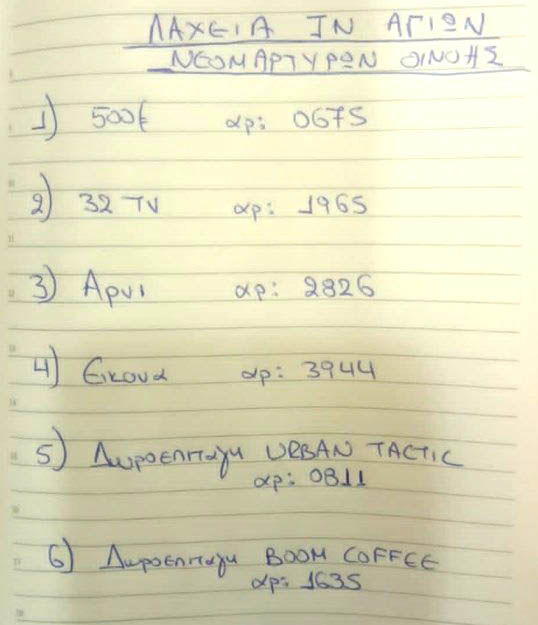 ΛΑΧΕΙΑ ΙΝ ΑΓΙΩΝ
ΝΕΟΜΑΡΤΥΡΩΝ ΟΙΝΟΗΣ
1) 500€ αρ: 0675
2) 32 TV αρ: 1965
3) Αρνι αρ: 2826
4) Εικονα αρ: 3944
5) Δωροεπιταγη URBAN TACTIC
αρ: 0811
6) Δωροεπιταγη BOOM COFFEE
αρ: 1635